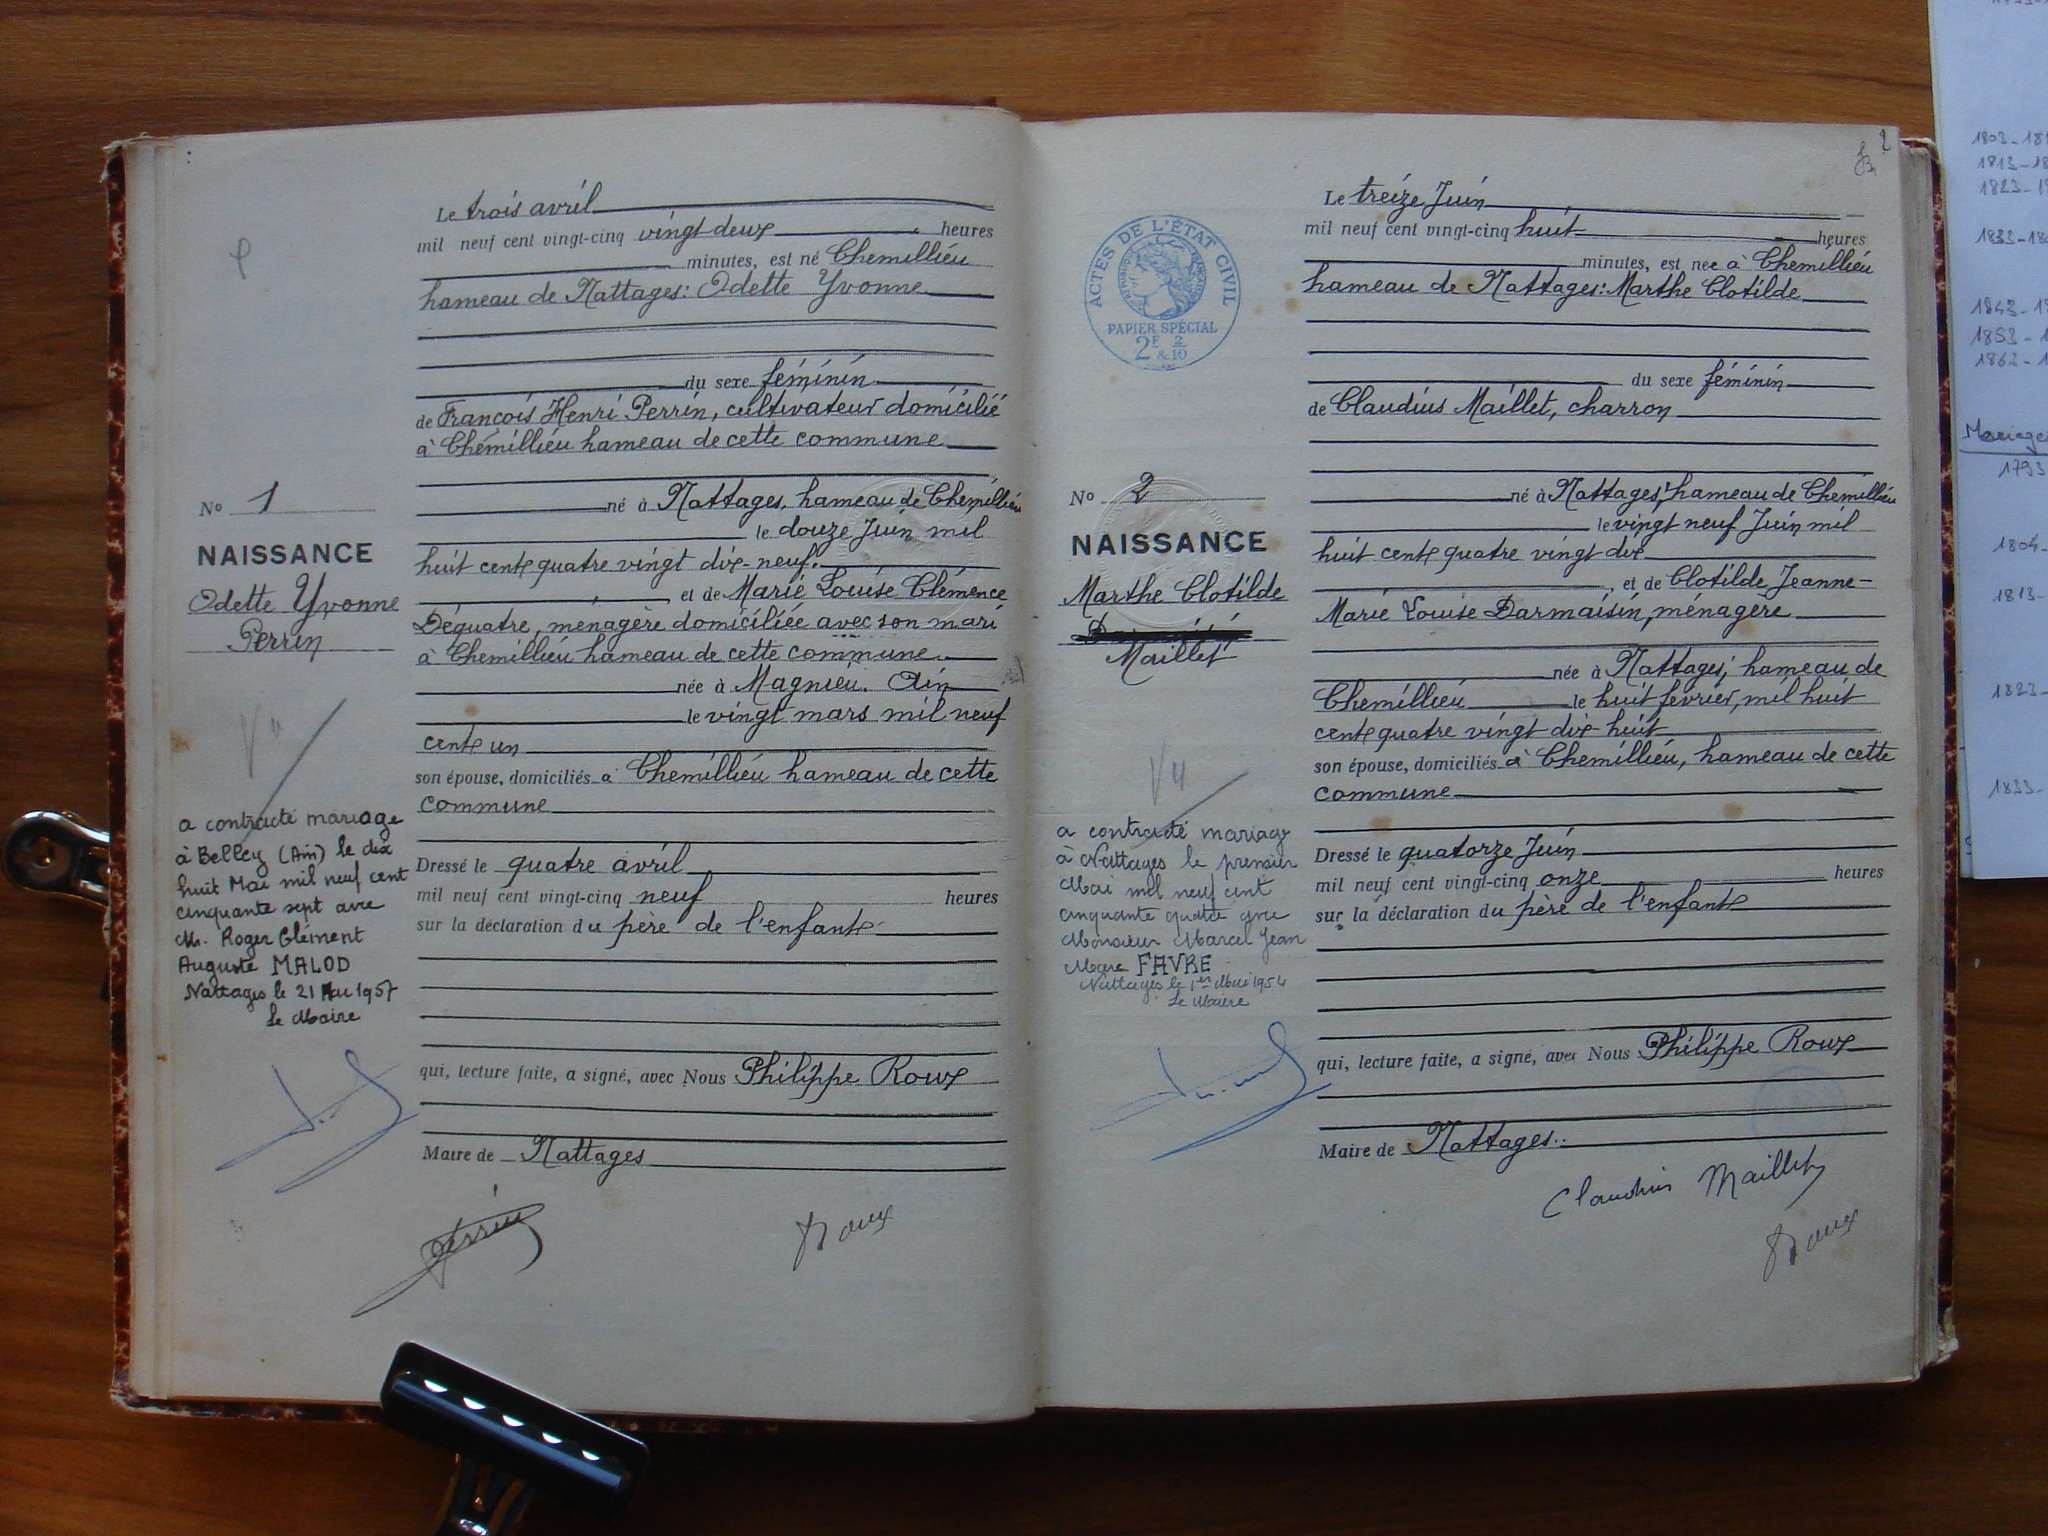 Le trois avril
mil neuf cent vingt-cinq vingt deux heures
minutes, est né Chemillieu
hameau de Nattages: Odette Yvonne
du sexe féminin
de François Henri Perrin, cultivateur domicilié
à Chemillieu hameau de cette commune
né à Nattages, hameau de Chemillieu
le douze Juin mil
huit cent quatre vingt dix-neuf.
et de Marie Louise Clémence
Déquatre, ménagère domiciliée avec son mari
à Chemillieu hameau de cette commune.
née à Magnieu. Ain
le vingt mars mil neuf
cent un
son épouse, domiciliés à Chemillieu hameau de cette
commune
Dressé le quatre avril
mil neuf cent vingt-cinq neuf heures
sur la déclaration du père de l'enfant
qui, lecture faite, a signé, avec Nous Philippe Roux
Maire de Nattages
Perrin
Roux
No 1
NAISSANCE
Odette Yvonne
Perrin
a contracté mariage
à Belley (Ain) le dix
huit Mai mil neuf cent
cinquante sept avec
M. Roger Clément
Auguste MALOD
Nattages le 21 Mai 1957
Le Maire
2
ACTES DE L'ÉTAT CIVIL
PAPIER SPÉCIAL
2F 2/10
Le treize Juin
mil neuf cent vingt-cinq huit heures
minutes, est née à Chemillieu
hameau de Nattages: Marthe Clotilde
du sexe féminin
de Claudius Maillet, charron
né à Nattages, hameau de Chemillieu
le vingt neuf Juin mil
huit cent quatre vingt dix
et de Clotilde Jeanne-
Marie Louise Darmaisin, ménagère
née à Nattages, hameau de
Chemillieu le huit février, mil huit
cent quatre vingt dix huit
son épouse, domiciliés à Chemillieu, hameau de cette
commune
Dressé le quatorze Juin
mil neuf cent vingt-cinq onze heures
sur la déclaration du père de l'enfant
qui, lecture faite, a signé, avec Nous Philippe Roux
Maire de Nattages..
Claudius Maillet
Roux
No 2
NAISSANCE
Marthe Clotilde
Maillet
a contracté mariage
à Nattages le premier
Mai mil neuf cent
cinquante quatre avec
Monsieur Marcel Jean
Marc FAVRE
Nattages le 1er Mai 1954
Le Maire
1803-18
1813-18
1823-1
1833-18
1843-1
1853-1
1863-1
Mariage
1793
1804-
1813-
1823-
1833-